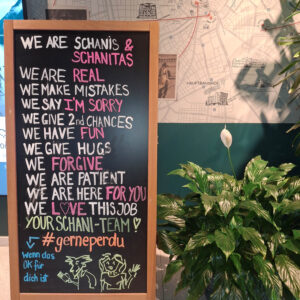 WE ARE SCHANIS &
SCHANITAS
WE ARE REAL
WE MAKE MISTAKES
WE SAY I'M SORRY
WE GIVE 2nd CHANCES
WE HAVE FUN
WE GIVE HUGS
WE FORGIVE
WE ARE PATIENT
WE ARE HERE FOR YOU
WE L♡VE THIS JOB
YOUR SCHANI-TEAM ♡
#gerneperdu
Wenn das
OK für
dich ist
HAUPTBAHNHOF